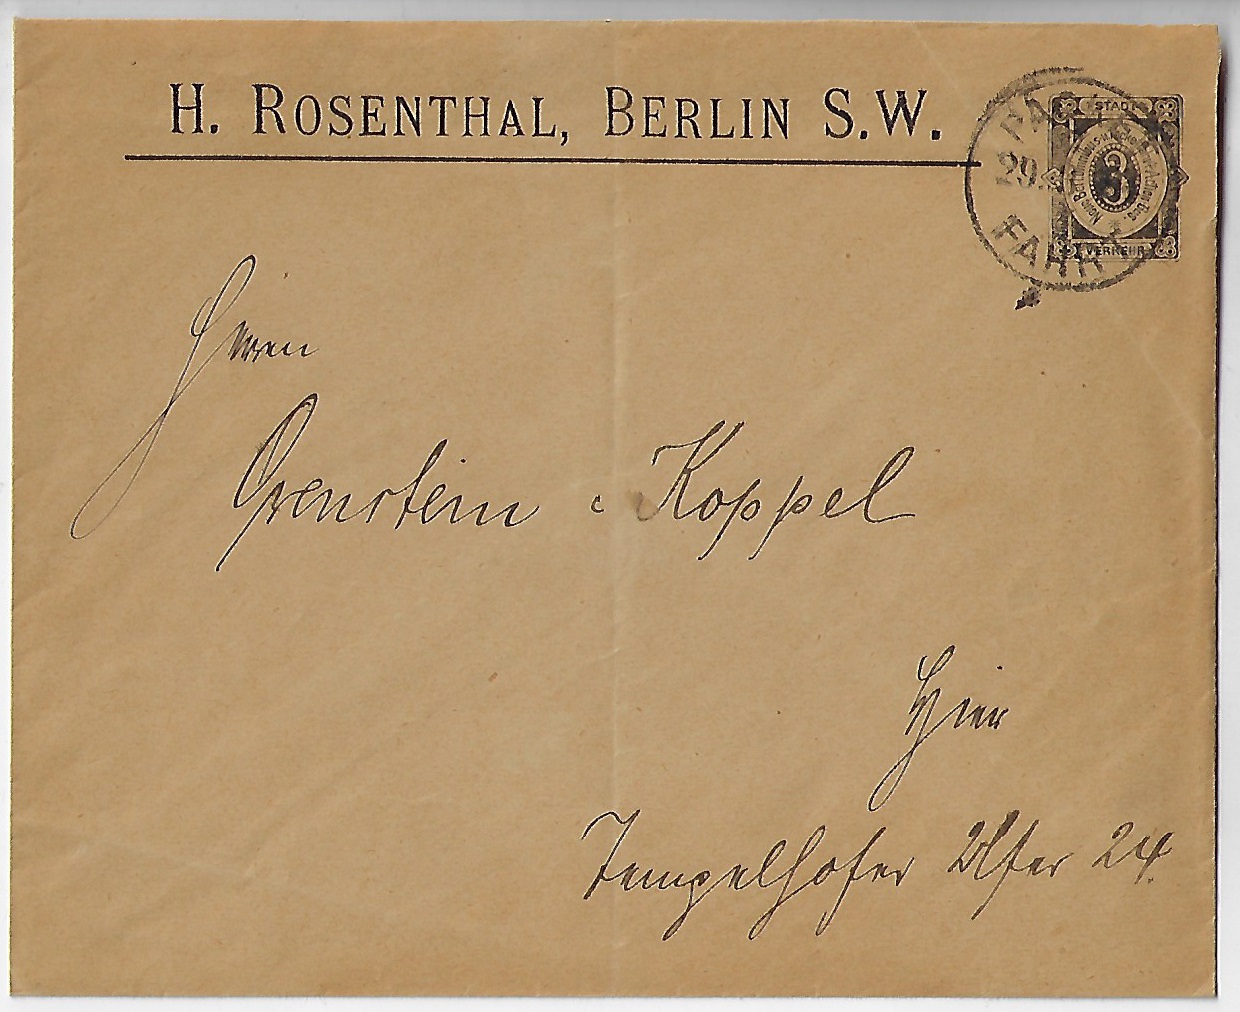 H. ROSENTHAL, BERLIN S.W.
STADT
3
VERKEHR
29.
FAHRT
Herren
Orenstein & Koppel
Hier
Tempelhofer Ufer 24.